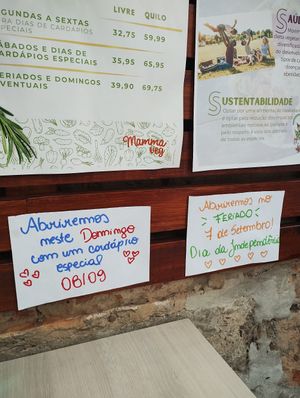 LIVRE QUILO
SEGUNDAS A SEXTAS
PARA DIAS DE CARDÁPIOS
ESPECIAIS
32,75 59,99
SÁBADOS E DIAS DE
CARDÁPIOS ESPECIAIS
35,95 65,95
FERIADOS E DOMINGOS
EVENTUAIS
39,90 69,75
Mamma
veg
SAÚ
SUSTENTABILIDADE
Abriremos
neste Domingo
com um cardápio
especial
08/09
Abriremos no
FERIADO
7 de Setembro!
Dia da Independência